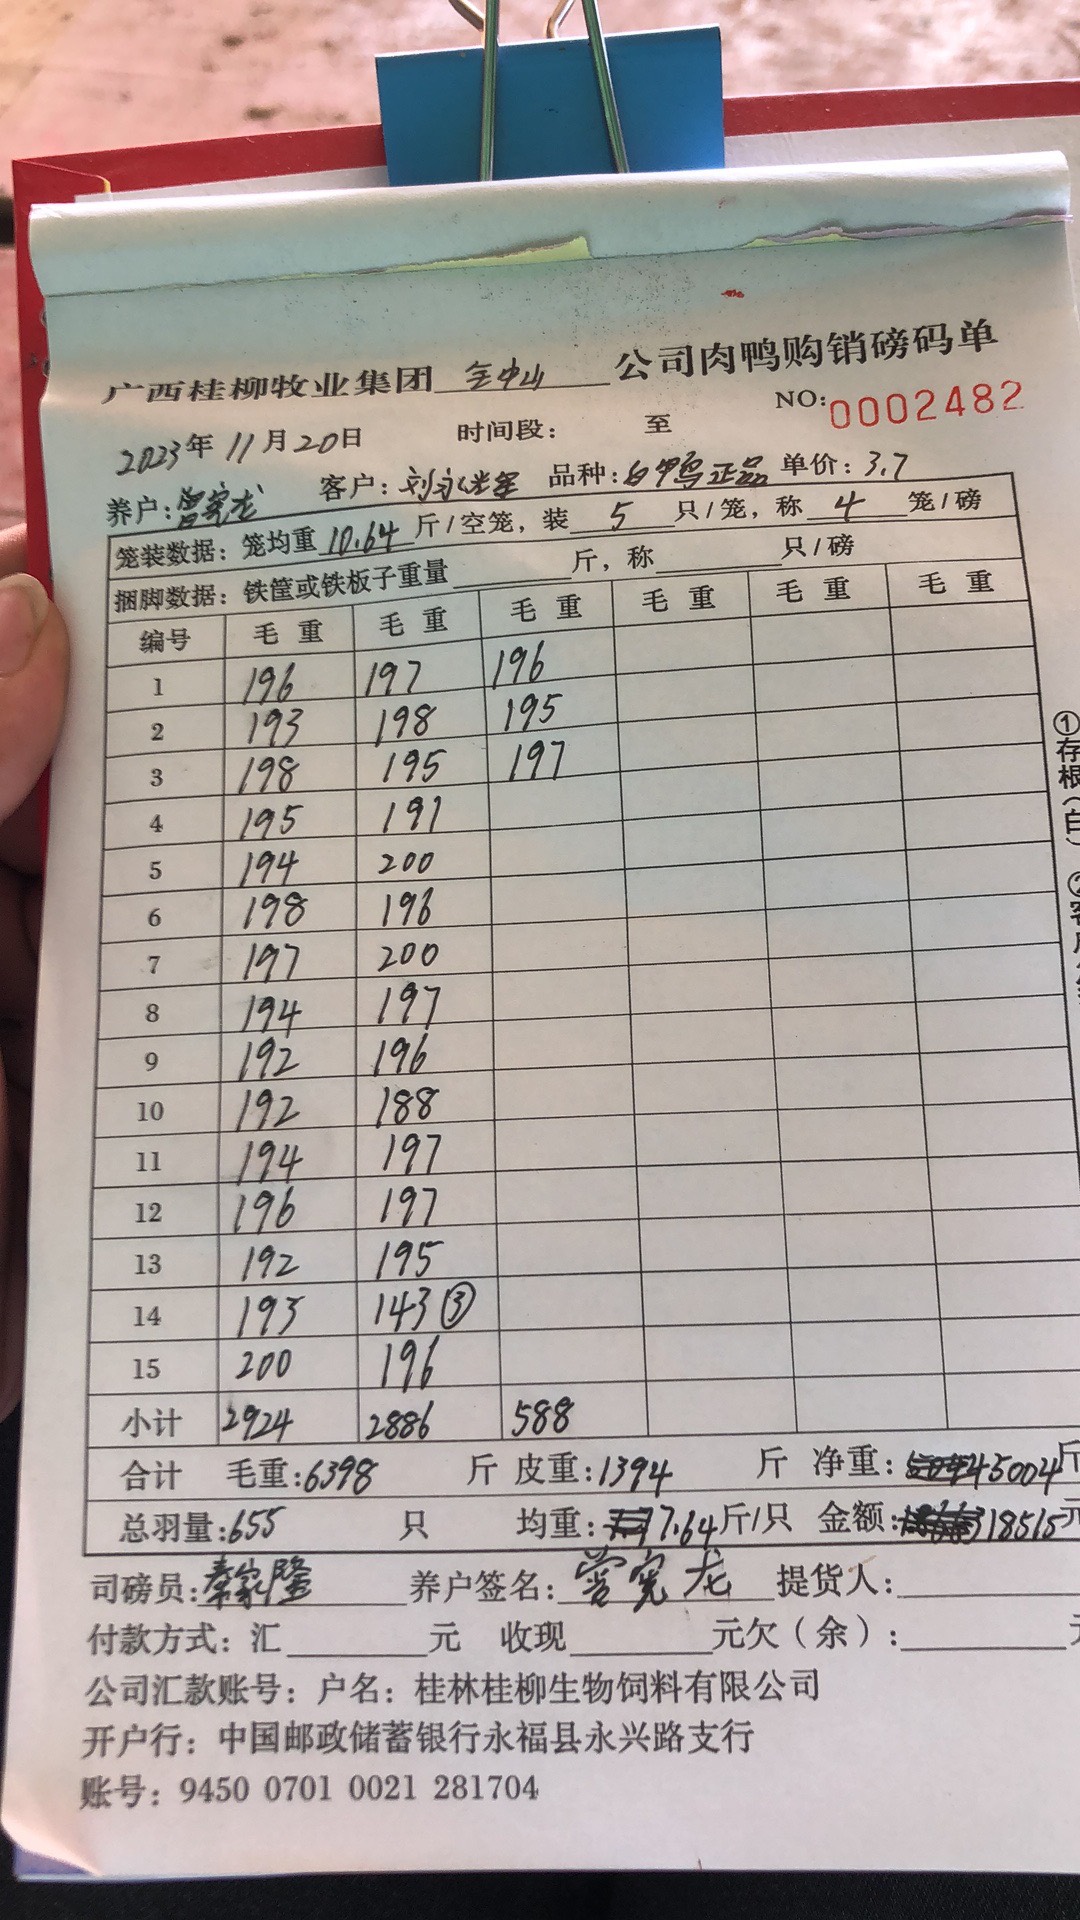 广西桂柳牧业集团 金中山 公司肉鸭购销磅码单
NO: 0002482
2023年11月20日 时间段: 至
养户: 曾宪龙 客户: 刘永 品种: 白甲鸟正品 单价: 3.7
笼装数据: 笼均重 10.64 斤/空笼, 装 5 只/笼, 称 4 笼/磅
捆脚数据: 铁筐或铁板子重量 斤, 称 只/磅
编号 毛重 毛重 毛重 毛重 毛重 毛重
1 196 197 196
2 193 198 195
3 198 195 197
4 195 191
5 194 200
6 198 196
7 197 200
8 194 197
9 192 196
10 192 188
11 194 197
12 196 197
13 192 195
14 193 143 ③
15 200 196
小计 2924 2886 588
合计 毛重: 6398 斤 皮重: 1394 斤 净重: 5004 斤
总羽量: 655 只 均重: 7.64 斤/只 金额: 18515 元
司磅员: 秦家隆 养户签名: 曾宪龙 提货人:
付款方式: 汇 元 收现 元欠(余):
公司汇款账号: 户名: 桂林桂柳生物饲料有限公司
开户行: 中国邮政储蓄银行永福县永兴路支行
账号: 9450 0701 0021 281704
①存根(白)